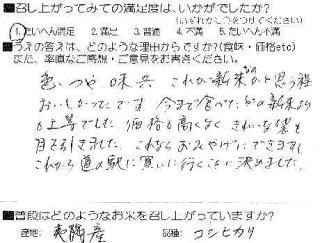 ■召し上がってみての満足度は、いかがでしたか?
(いずれかに○をつけてください)
1.たいへん満足 2.満足 3.普通 4.不満 5.たいへん不満
■うえの答えは、どのような理由からですか?(食味・価格etc)
また、率直なご感想・ご意見をお書きください。
色、つや 味共 これが新米なのかと思う程
おいしかったです 今まで食べた 新米より
も上等でした。価格も高くなく きれいな袋も
目を引きました。これならおみやげにできます。
これから道の駅に買いに行くことに決めました。
■普段はどのようなお米を召し上がっていますか?
産地: 夷隅産 品種: コシヒカリ